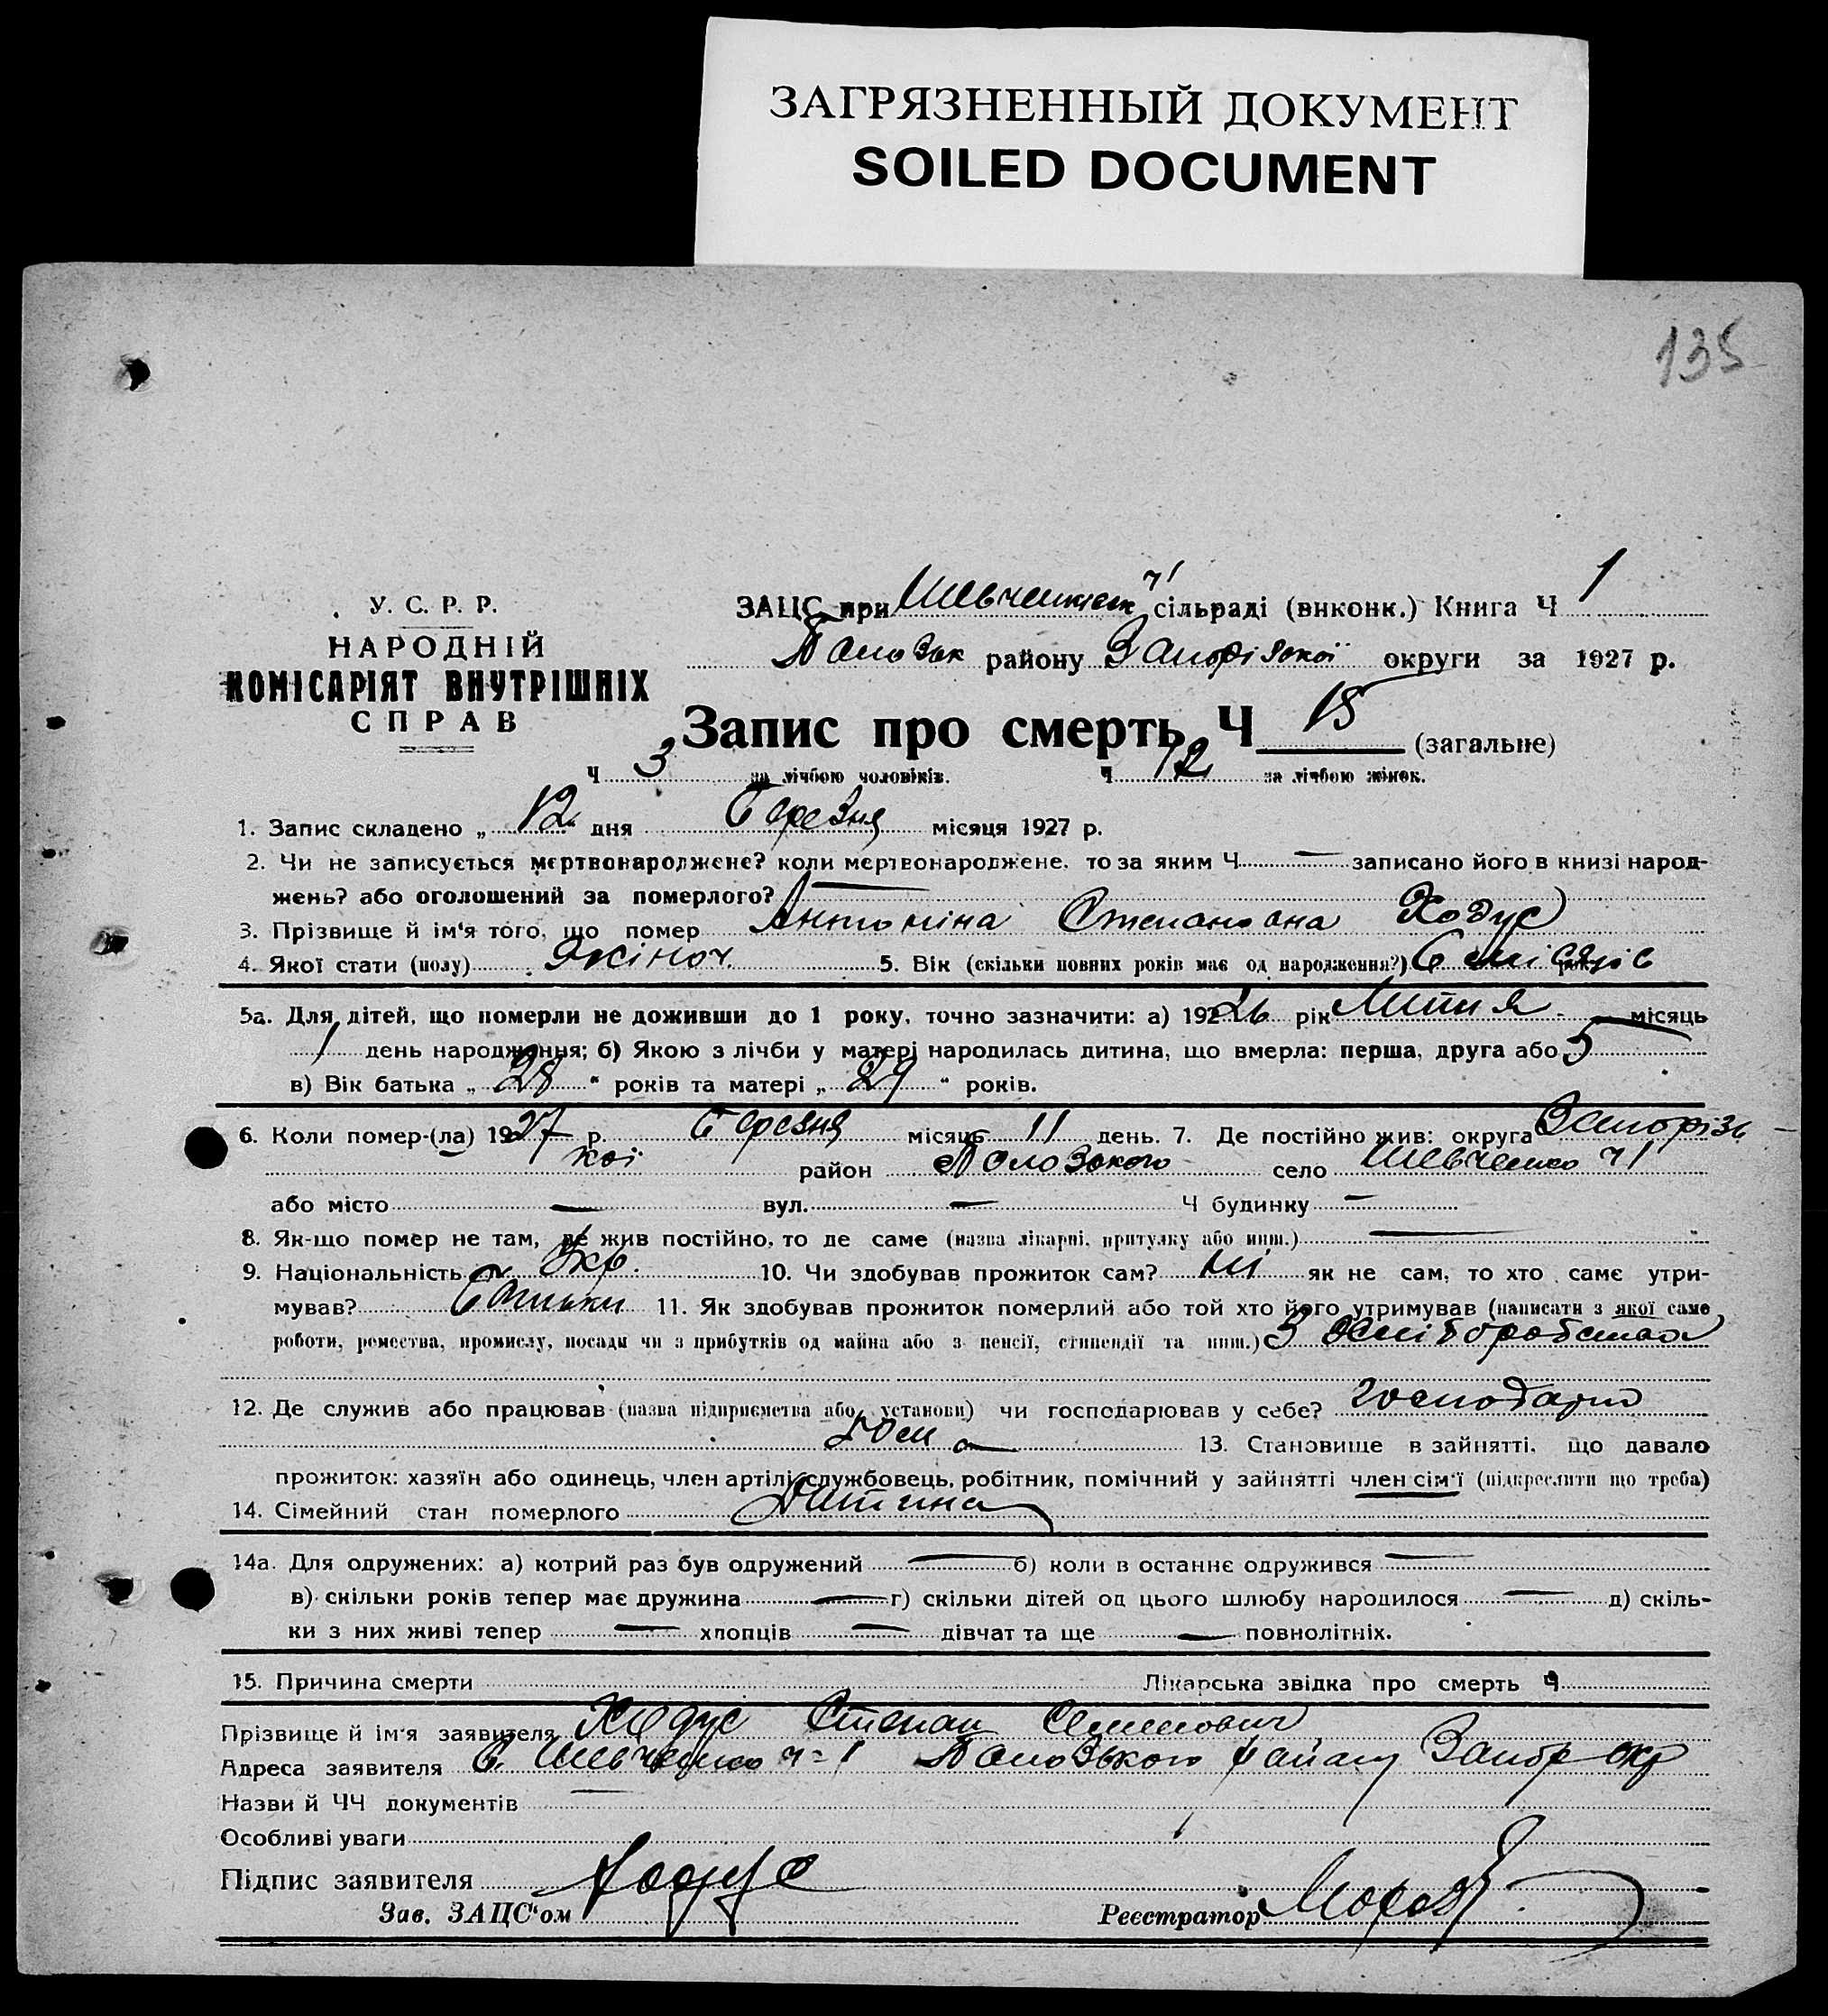 ЗАГРЯЗНЕННЫЙ ДОКУМЕНТ
SOILED DOCUMENT
135
У. С. Р. Р.
НАРОДНІЙ
КОМІСАРІЯТ ВНУТРІШНІХ
СПРАВ
ЗАЦС при Шевченківськ ч1 сільраді (виконк.) Книга Ч 1
Пологівськ району Запорізької округи за 1927 р.
Запис про смерть Ч 15 (загальне)
Ч 3 за лічбою чоловіків. Ч 12 за лічбою жінок.
1. Запис складено „ 12 “ дня Березня місяця 1927 р.
2. Чи не записується мертвонароджене? коли мертвонароджене, то за яким Ч — записано його в книзі народ-
жень? або оголошений за померлого? —
3. Прізвище й ім'я того, що помер Антоніна Степановна Ходус
4. Якої стати (полу) жіноч. 5. Вік (скільки повних років має од народження?) 6 місяців
5а. Для дітей, що померли не доживши до 1 року, точно зазначити: а) 1926 рік Липня місяць
1 день народження; б) Якою з лічби у матері народилась дитина, що вмерла: перша, друга або 5
в) Вік батька „ 28 “ років та матері „ 29 “ років.
6. Коли помер-(ла) 1927 р. Березня місяць 11 день. 7. Де постійно жив: округа Запорізь-
кої район село Шевченко ч1
або місто — вул. — Ч будинку —
8. Як-що помер не там, де жив постійно, то де саме (назва лікарні, притулку або инш.) —
9. Національність Укр. 10. Чи здобував прожиток сам? ні як не сам, то хто саме утри-
мував? Батьки 11. Як здобував прожиток померлий або той хто його утримував (написати з якої саме
роботи, ремества, промислу, посади чи з прибутків од майна або з пенсії, стипендії та инш.) З хліборобства
12. Де служив або працював (назва підприємства або установи) чи господарював у себе? господарю
13. Становище в зайнятті, що давало
прожиток: хазяїн або одинець, член артілі, службовець, робітник, помічний у зайнятті член сім'ї (підкреслити що треба)
14. Сімейний стан померлого Дитина
14а. Для одружених: а) котрий раз був одружений — б) коли в останнє одружився —
в) скільки років тепер має дружина — г) скільки дітей од цього шлюбу народилося — д) скіль-
ки з них живі тепер — хлопців — дівчат та ще — повнолітніх.
15. Причина смерти Лікарська звідка про смерть Ч
Прізвище й ім'я заявителя Ходус Степан Семенович
Адреса заявителя С. Шевченко ч=1 району Запор окр
Назви й ЧЧ документів —
Особливі уваги
Підпис заявителя Ходус
Зав. ЗАЦС'ом Реєстратор Мороз